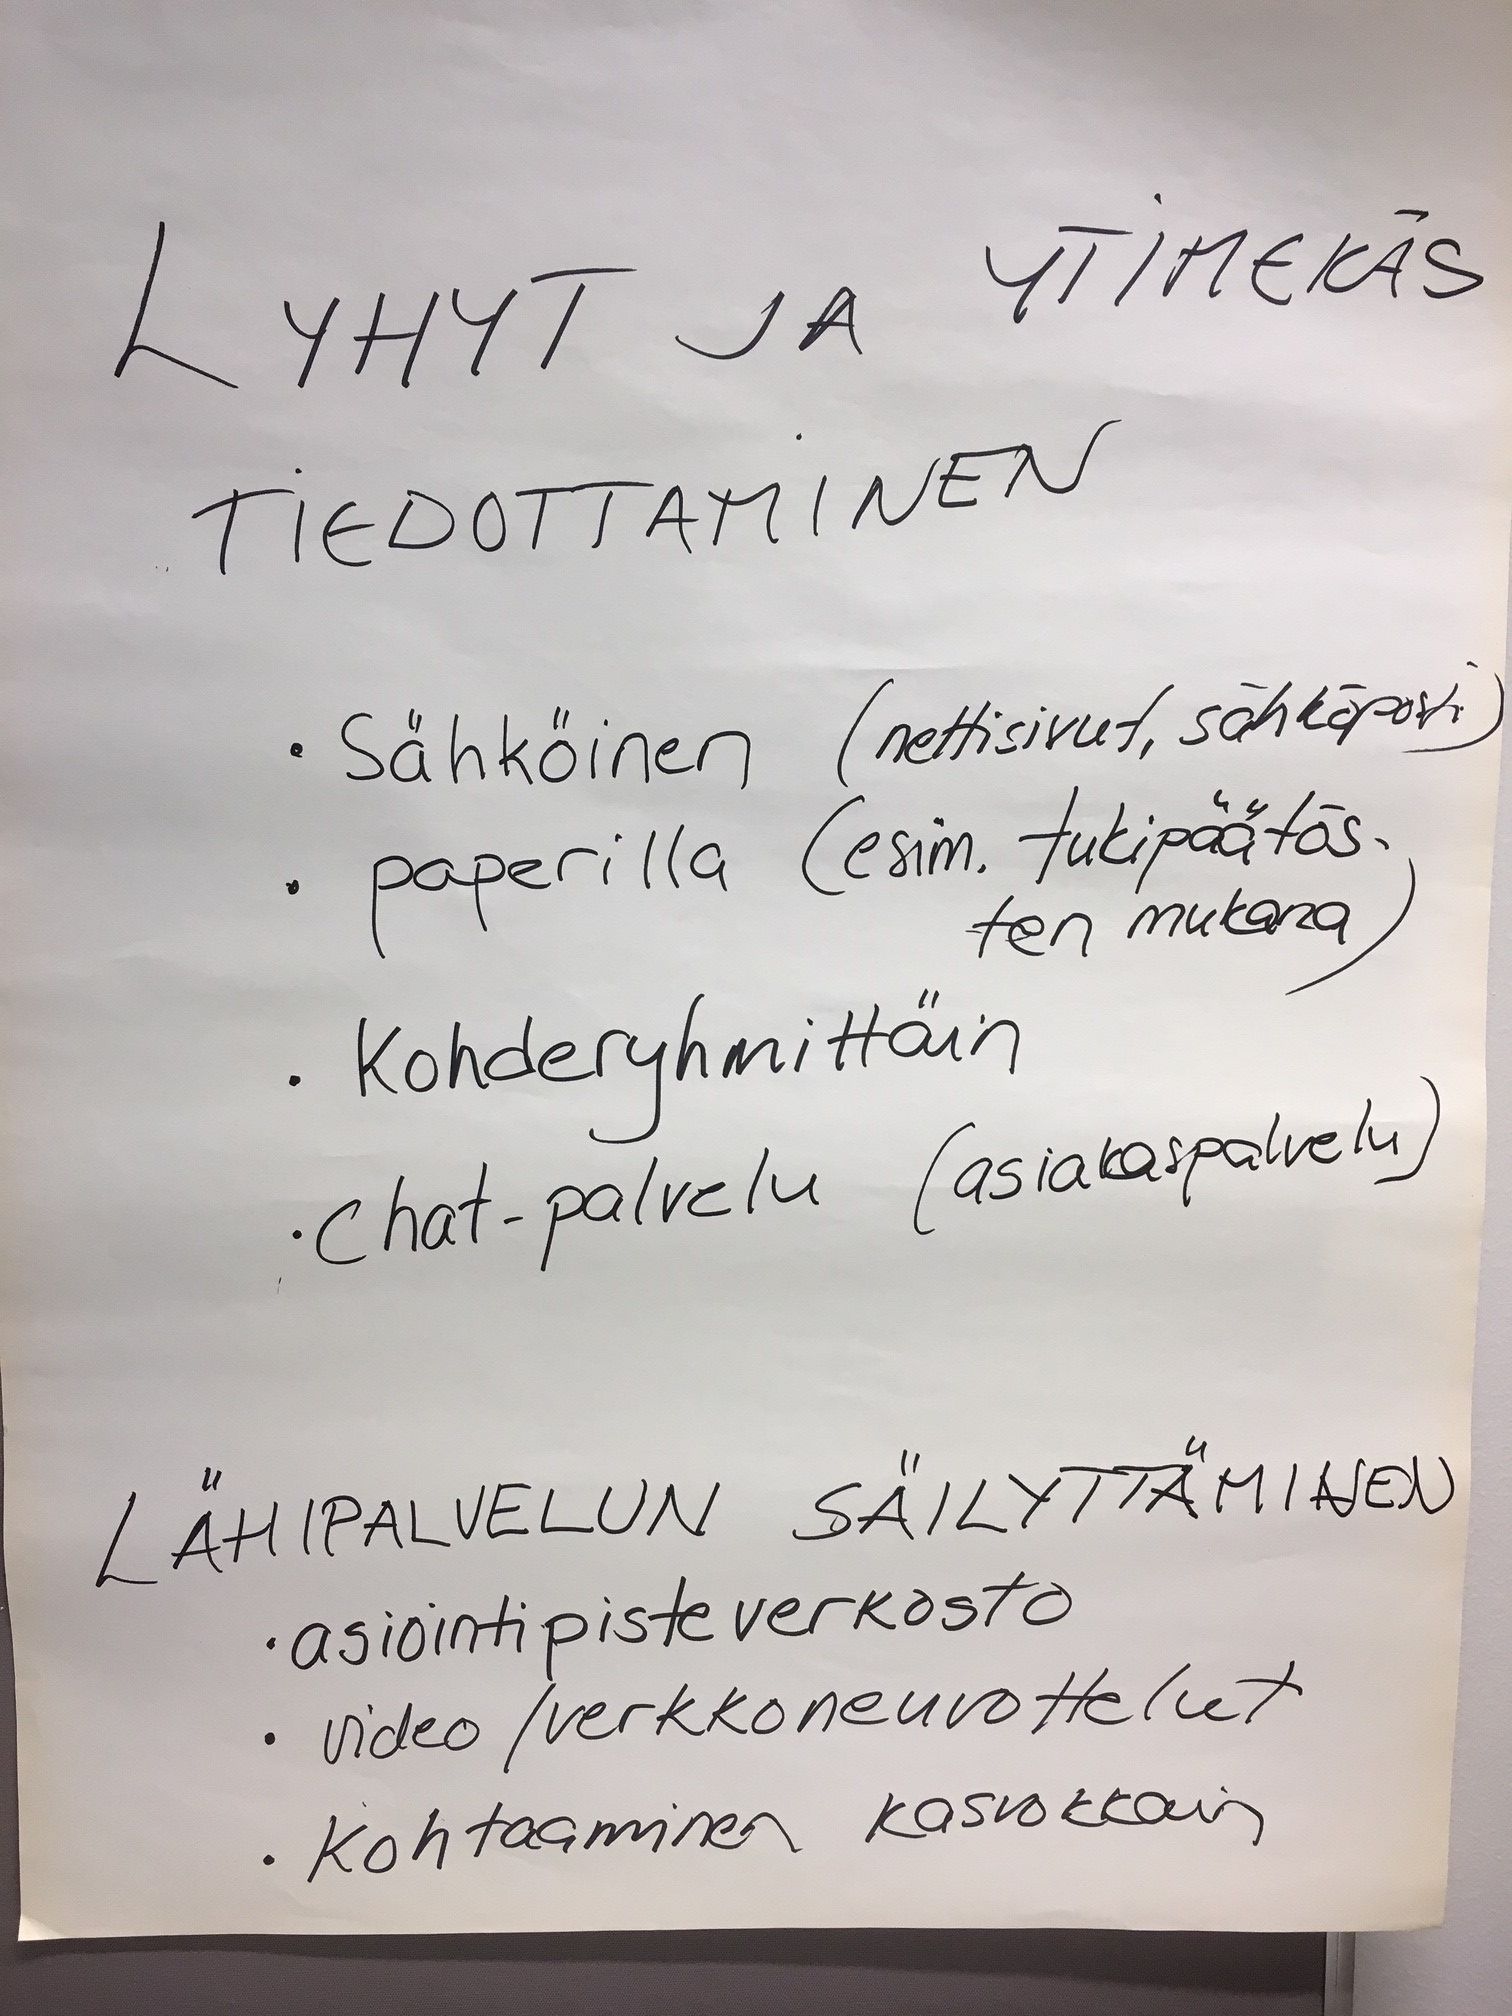 LYHYT JA YTIMEKÄS
TIEDOTTAMINEN
• Sähköinen (nettisivut, sähköposti)
• paperilla (esim. tukipäätös-
ten mukana)
• Kohderyhmittäin
• Chat-palvelu (asiakaspalvelu)
LÄHIPALVELUN SÄILYTTÄMINEN
• asiointipisteverkosto
• video/verkkoneuvottelut
• Kohtaaminen kasvokkain